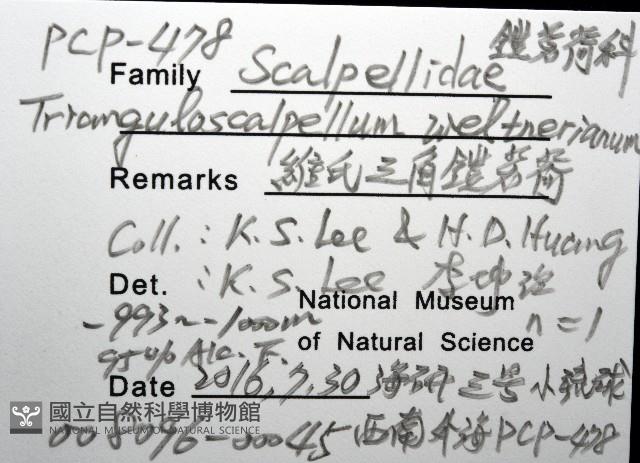 PCP-478 鎧茗荷科
Family Scalpellidae
Trianguloscalpellum weltnerianum
Remarks 維氏三角鎧茗荷
Coll. : K. S. Lee & H. D. Huang
Det. : K. S. Lee 李坤瑄
National Museum
-993~-1000m n=1
of Natural Science
95% Alc. F.
Date 2016.7.30 海研三号 小琉球
國立自然科學博物館
NATIONAL MUSEUM OF NATURAL SCIENCE
西南外海 PCP-478